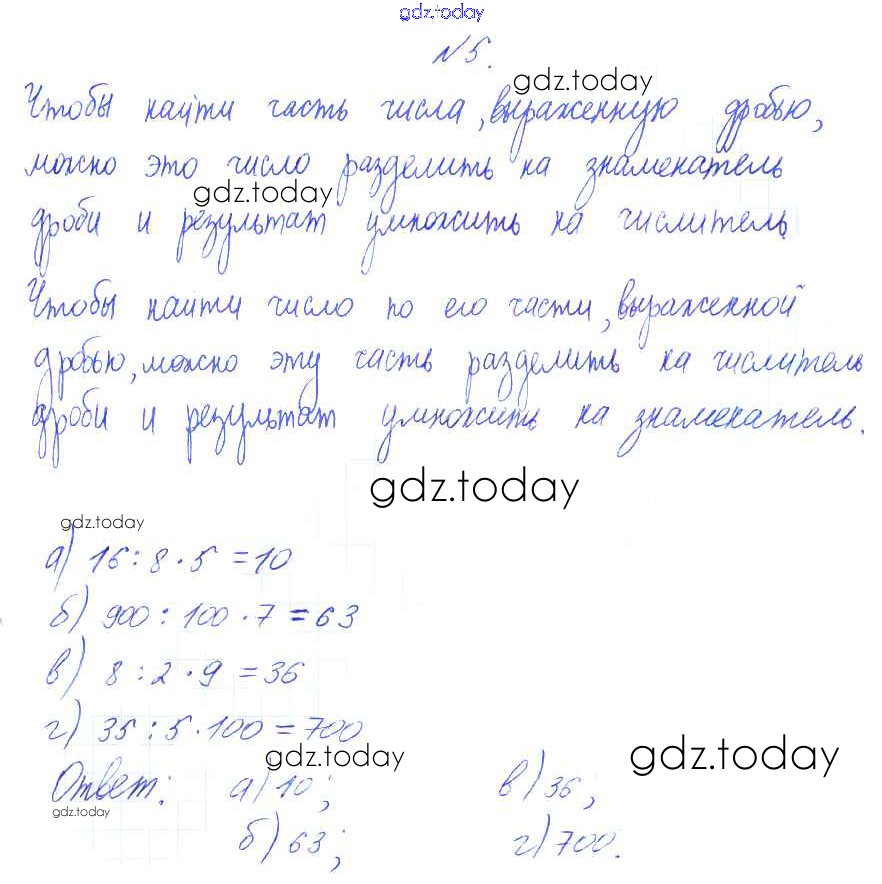 gdz.today
№5.
gdz.today
Чтобы найти часть числа, выраженную дробью,
можно это число разделить на знаменатель
gdz.today
дроби и результат умножить на числитель.
Чтобы найти число по его части, выраженной
дробью, можно эту часть разделить на числитель
дроби и результат умножить на знаменатель.
gdz.today
gdz.today
а) 16 : 8 · 5 = 10
б) 900 : 100 · 7 = 63
в) 8 : 2 · 9 = 36
г) 35 : 5 · 100 = 700
gdz.today
gdz.today
Ответ: а) 10; в) 36;
gdz.today
б) 63; г) 700.